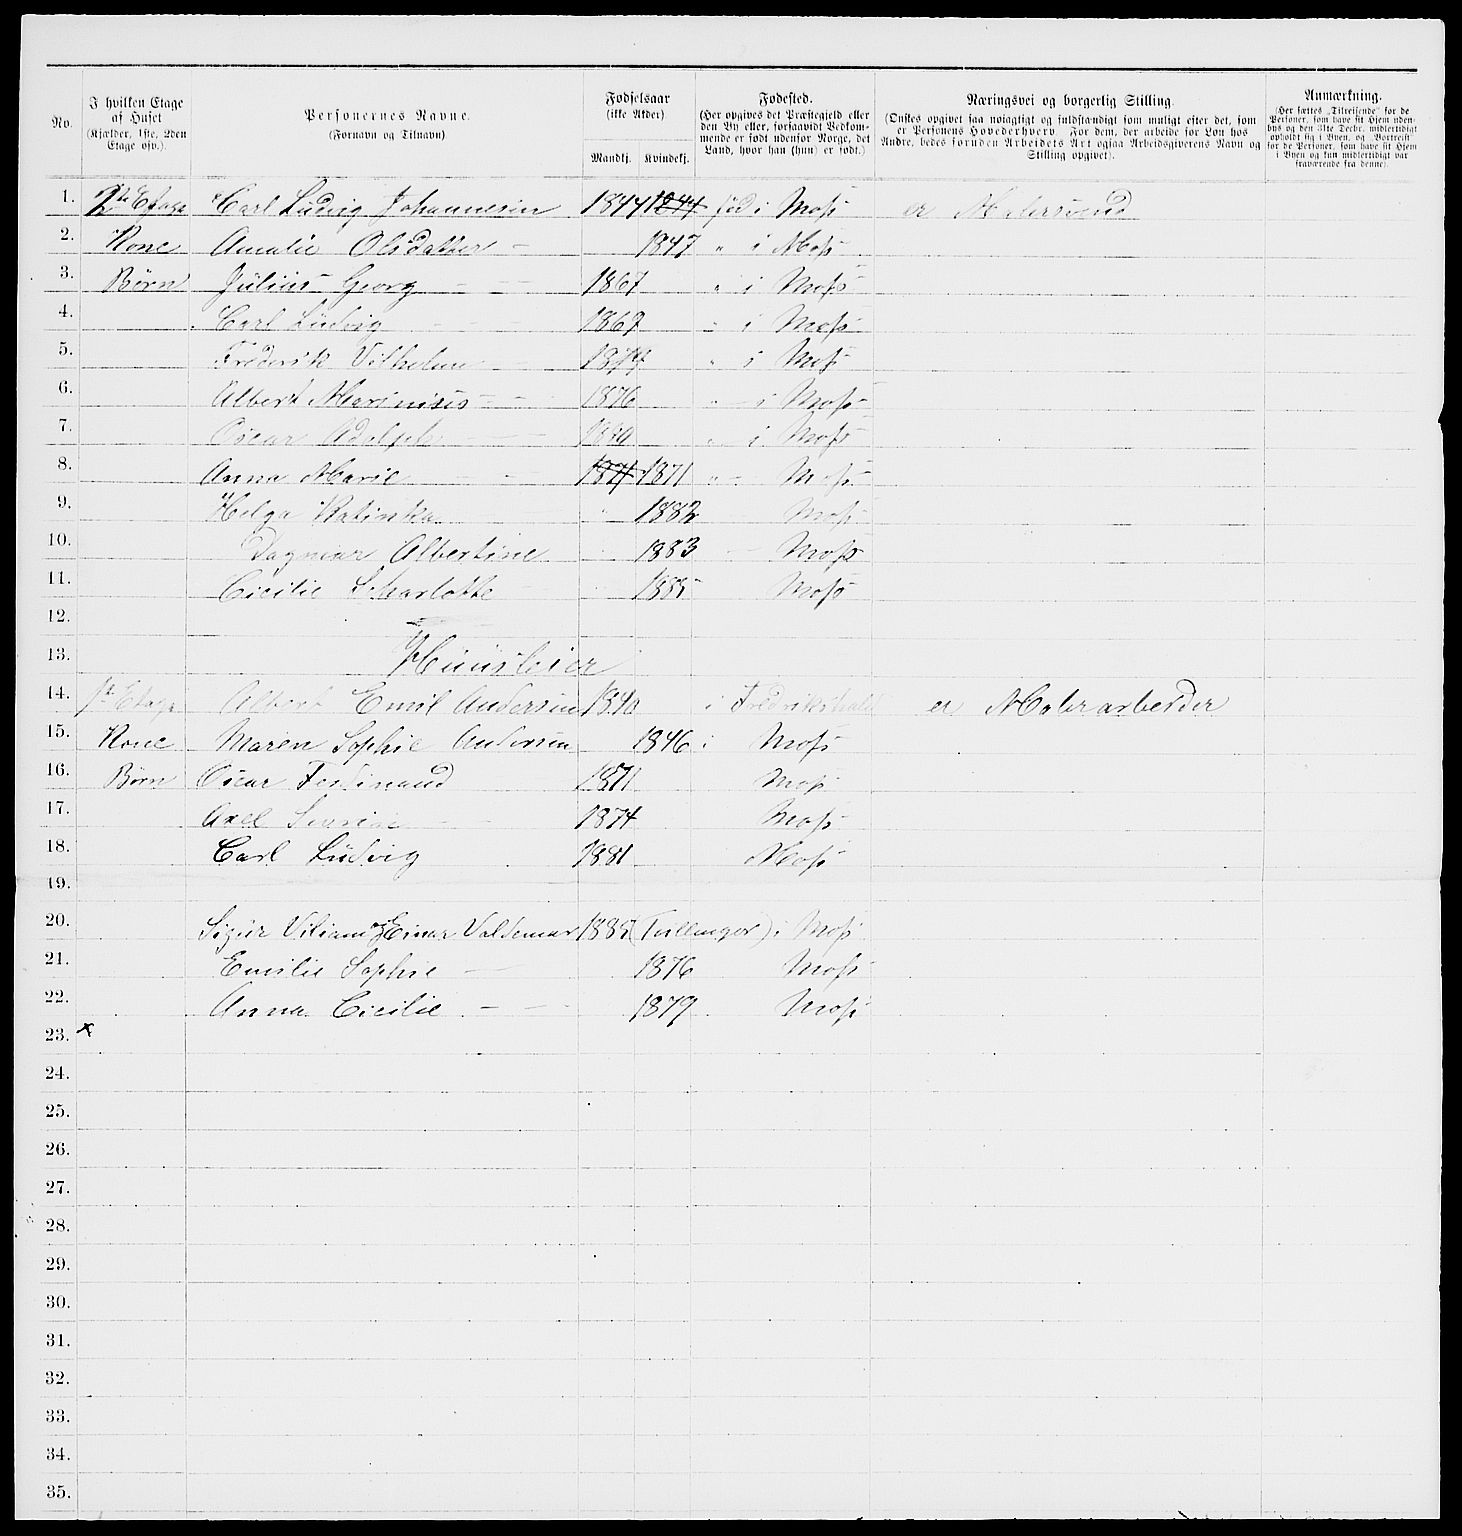 No.
I hvilken Etage
af Huset
(Kjælder, 1ste, 2den
Etage osv.).
Personernes Navne.
(Fornavn og Tilnavn).
Fødselsaar
(ikke Alder)
Mandkj. Kvindekj.
Fødested.
(Her opgives det Præstegjeld eller
den By eller, forsaavidt Vedkom-
mende er født udenfor Norge, det
Land, hvor han (hun) er født.)
Næringsvei og borgerlig Stilling.
(Ønskes opgivet saa nøiagtigt og fuldstændigt som muligt efter det, som
er Personens Hovederhverv. For dem, der arbeide for Løn hos
Andre, bedes foruden Arbeidets Art ogsaa Arbeidsgiverens Navn og
Stilling opgivet).
Anmærkning.
(Her sættes „Tilreisende" for de
Personer, som have sit Hjem uden-
bys og den 31te Decbr. midlertidigt
opholdt sig i Byen, og „Bortreist"
for de Personer, som have sit Hjem
i Byen og kun midlertidigt var
fraværende fra denne).
1. 2de Etage Carl Ludvig Johannesen 1844 1844 født i Moss er Malersvend
2. Kone Amalie Olsdatter - 1847 " i Moss
3. Børn Julius Georg - - 1867 " i Moss
4. Carl Ludvig - - - 1869 " i Moss
5. Frederik Vilhelm - 1874 " i Moss
6. Albert Marinius - - 1876 " i Moss
7. Oscar Adolph - - 1880 " i Moss
8. Anna Marie - - 1871 1871 " - Moss
9. Helga Katinka " 1882 Moss
10. Dagmar Albertine 1883 - Moss
11. Cicilie Scharlotte 1885 Moss
12.
13. Huusleier
14. 1st Etage Albert Emil Andersen 1840 i Fredrikshald er Malerarbeider
15. Kone Maren Sophie Andersen 1846 i Moss
16. Børn Oscar Ferdinand 1871 Moss
17. Axel Severin - 1874 Moss
18. Carl Ludvig 1881 Moss
19.
20. Sigur Viliam og Einar Valdemar 1885 (Tvillinger) i Moss
21. Emilie Sophie - 1876 Moss
22. Anna Cicilie - - 1879 Moss
23. x
24.
25.
26.
27.
28.
29.
30.
31.
32.
33.
34.
35.